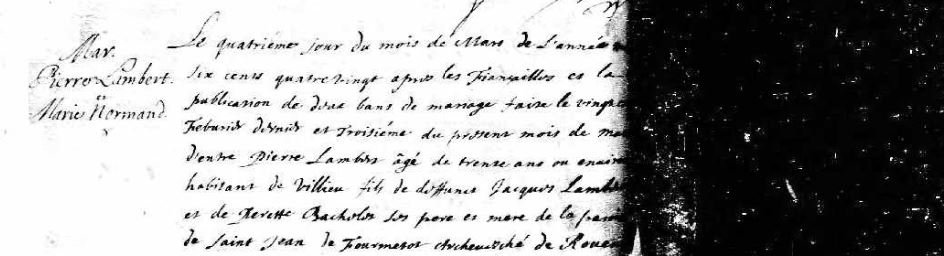 Mar.
Pierre Lambert.
Marie Normand
Le quatrieme jour du mois de Mars de L'année
six cents quatre vingt apres les Fiançailles et la
publication de deux bans de mariage faite le vingt
Feburier dernier et Troisiéme du present mois de ma
d'entre Pierre Lambert âgé de trente ans ou enuir
habitant de Villieu fils de deffunct Jacques Lamb
et de Perette Bachelos ses pere et mere de la paro
de saint Jean de Fourmetot Archeuesché de Rouen